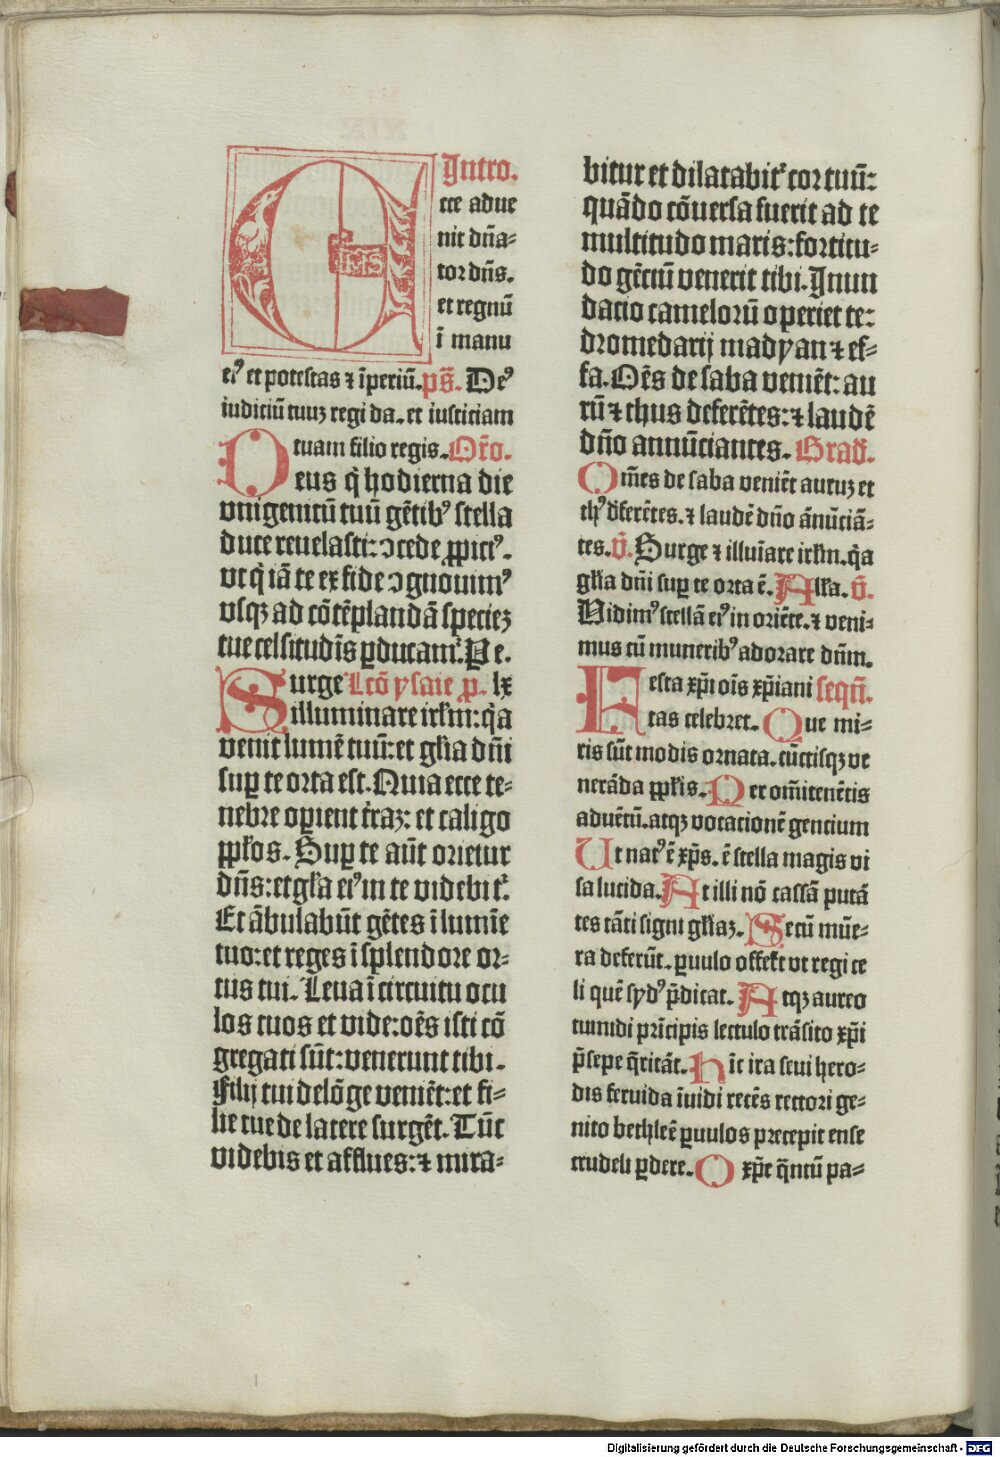 Intro.
Ecce adue
nit dn̄a⸗
tor dn̄s.
et regnū
ī manu
eiꝰ et potestas ⁊ īperiū. ps̄. Deꝰ
iudiciū tuuꝫ regi da. et iusticiam
tuam filio regis. Or̄o.
Deus q̇ hodierna die
vnigenitū tuū gētibꝰ stella
duce reuelasti: ↄcede ꝓpiciꝰ.
vt q̇ iā te ex fide ↄgnouimꝰ
vsqꝫ ad cōtēplandā specieꝫ
tue celsitudīs ꝑducamᷣ. Pe.
Surge Lcō ysaie ꝓ. lx
illuminare irl̄m: q̇a
venit lumē tuū: et gl̄ia dn̄i
suꝑ te orta est. Quia ecce te⸗
nebre oꝑient t̄raꝫ: et caligo
ppl̄os. Suꝑ te aūt orietur
dn̄s: et gl̄a eiꝰ in te videbitᷣ.
Et ābulabūt gētes ī lumīe
tuo: et reges ī splendore or⸗
tus tui. Leua ī circuitu ocu
los tuos et vide: oēs isti cō
gregati sūt: venerunt tibi.
Filij tui de lōge veniēt: et fi⸗
lie tue de latere surgēt. Tūc
videbis et afflues: ⁊ mira⸗
bitur et dilatabitᷣ cor tuū:
quādo cōuersa fuerit ad te
multitudo maris: fortitu⸗
do gētiū venerit tibi. Inun
datio camelorū operiet te:
dromedarij madyan ⁊ ef⸗
fa. Oēs de saba veniēt: au
rū ⁊ thus deferētes: ⁊ laudē
dn̄o annūciantes. Grad̄.
Om̄es de saba veniēt auruꝫ et
thꝰ d̄ferētes. ⁊ laudē dn̄o ānūciā⸗
tes. V̄. Surge ⁊ illuīare irl̄m. q̇a
gl̄ia dn̄i suꝑ te orta ē. Alīa. V̄.
Vidimꝰ stellā eiꝰ in oriēte. ⁊ veni⸗
mus cū muneribꝰ adorare dn̄m.
Festa xp̄i oīs xp̄iani seqn̄.
tas celebret. Que mi⸗
ris sūt modis ornata. cūctisqꝫ ve
nerāda ppl̄is. Per om̄itenētis
aduētū. atqꝫ vocationē gentium
Ut natꝰ ē xp̄s. ē stella magis vi
sa lucida. At illi nō cassā putā
tes tāti signi gl̄iaꝫ. Secū mūe⸗
ra deferūt. ꝑuulo offerāt vt regi ce
li quē sydꝰ p̄dicat. Atqꝫ aureo
tumidi prīcipis lectulo trāsito xp̄i
p̄sepe q̄ritāt. Hīc ira seui hero⸗
dis feruida īuidi recēs rectori ge⸗
nito bethleē ꝑuulos precepit ense
crudeli ꝑdere. O xp̄e q̄ntū pa⸗
Digitalisierung gefördert durch die Deutsche Forschungsgemeinschaft - DFG